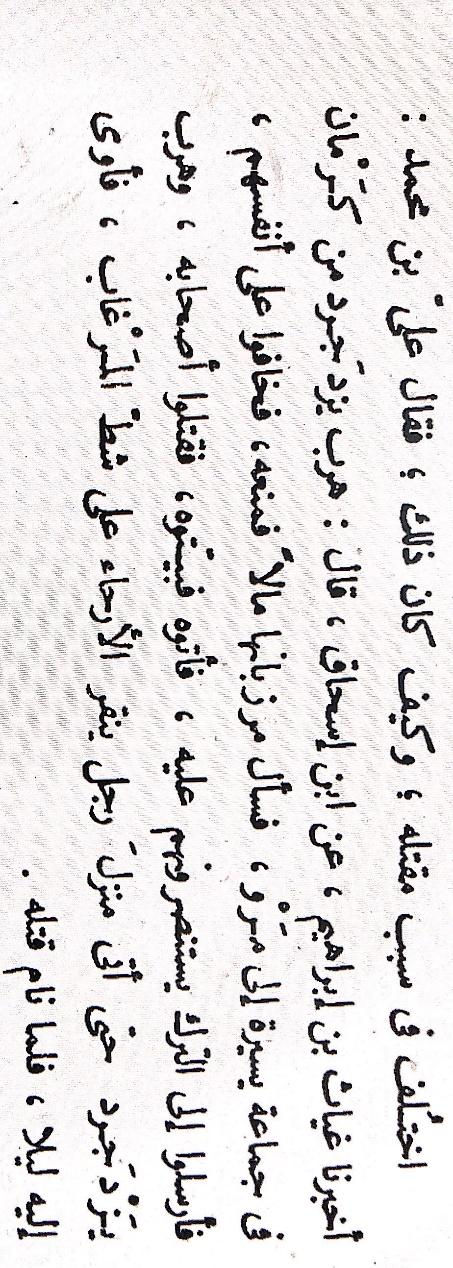 اختُلف فى سبب مقتله ؛ وكيف كان ذلك ؛ فقال علىّ بن محمد :
أخبرنا غياث بن إبراهيم ، عن ابن إسحاق ، قال : هرب يزدَجرد من كَرْمان
فى جماعة يسيرة إلى مَرْو ، فسأل مرزبانها مالاً فمنعه ، فخافوا على أنفسهم ،
فأرسلوا إلى الترك يستنصرونهم عليه ، فأتوه فبيّتوه ، فقتلوا أصحابه ، وهرب
يَزْدَجرد حتى أتى منزلَ رجل ينقر الأرحاء على شطّ المَرْغاب ، فأوى
إليه ليلا ، فلما نام قتله .